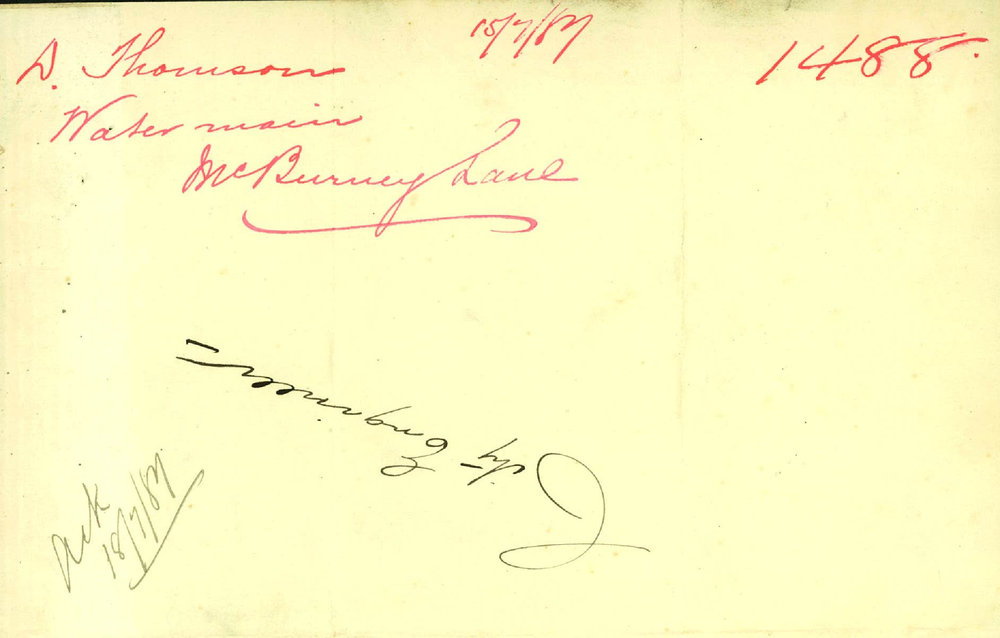 15/7/87
1488.
D. Thomson
Water main
McBurney Lane
City Engineer
Ack
18/7/87